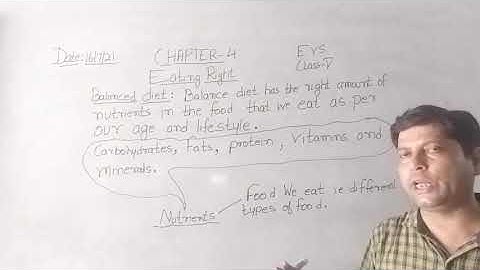 Date: 16/7/21 CHAPTER-4 EVS
Eating Right Class-V
Balanced diet: Balance diet has the right amount of
nutrients in the food that we eat as per
our age and lifestyle.
Carbohydrates, Fats, protein, Vitamins and
minerals.
Food We eat ie different
Nutrients types of food.